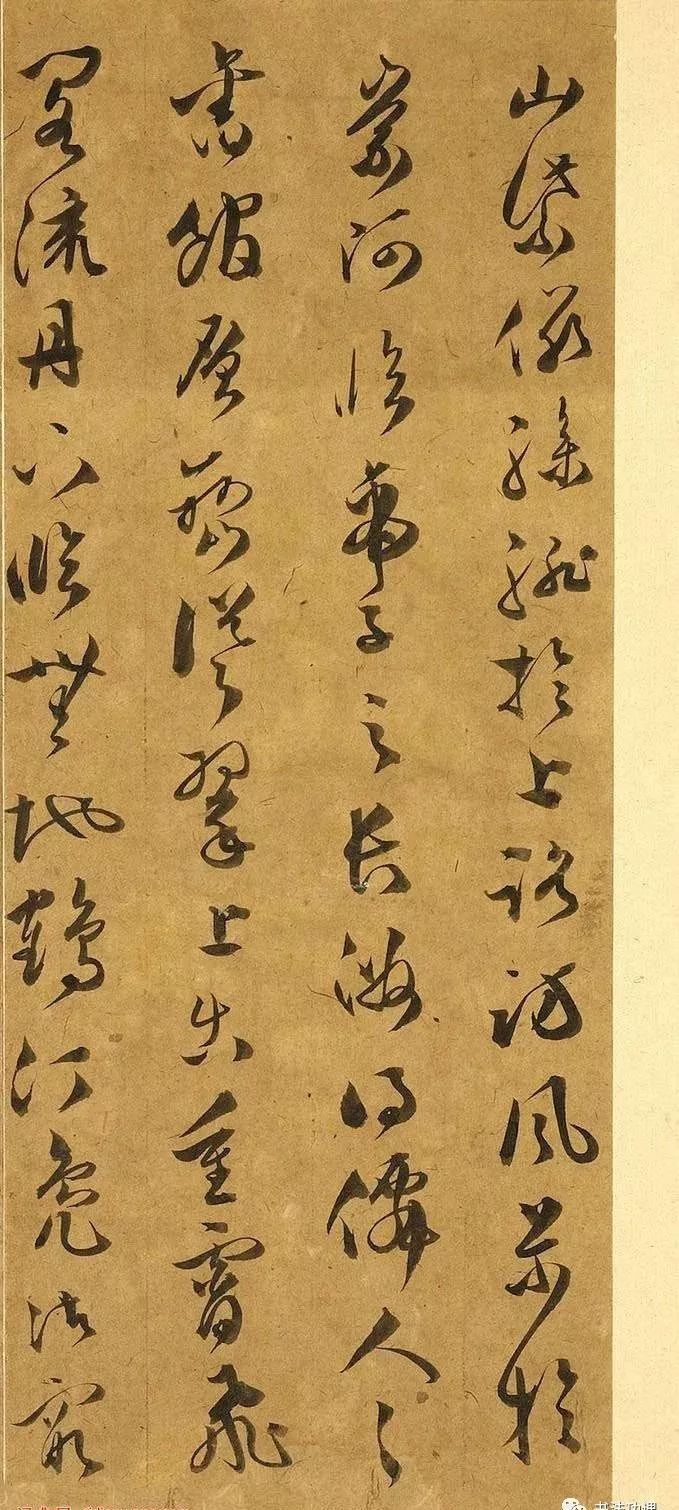 山紫儼驂騑於上路訪風景於
崇阿臨帝子之長洲得僊人之
舊館層巒聳翠上出重霄飛
閣流丹下臨無地鶴汀鳧渚窮